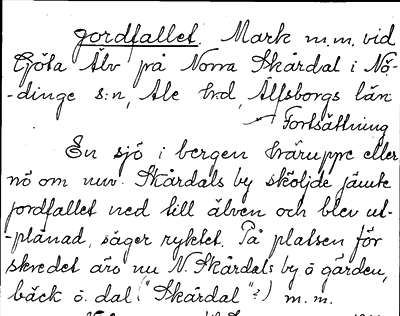 Jordfallet. Mark m.m. vid
Göta Älv på Norra Skårdal i Nö-
-dinge s:n, Ale hrd, Älfsborgs län
Fortsättning
En sjö i bergen häruppe eller
nö om nuv. Skårdals by sköljde jämte
jordfallet ned till älven och blev ut-
-plånad, säger ryktet. På platsen för
skredet äro nu N. Skårdals by o gården,
bäck o. dal ("Skårdal"?) m.m.